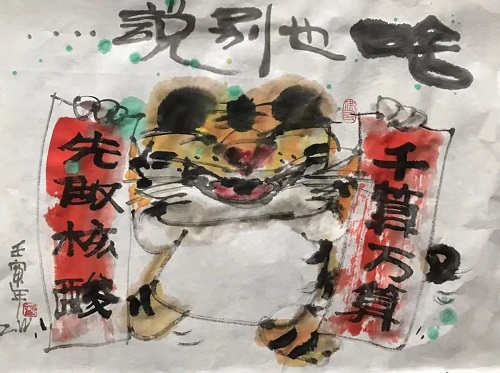 啥也别説……
千算万算
先做核酸
壬寅年